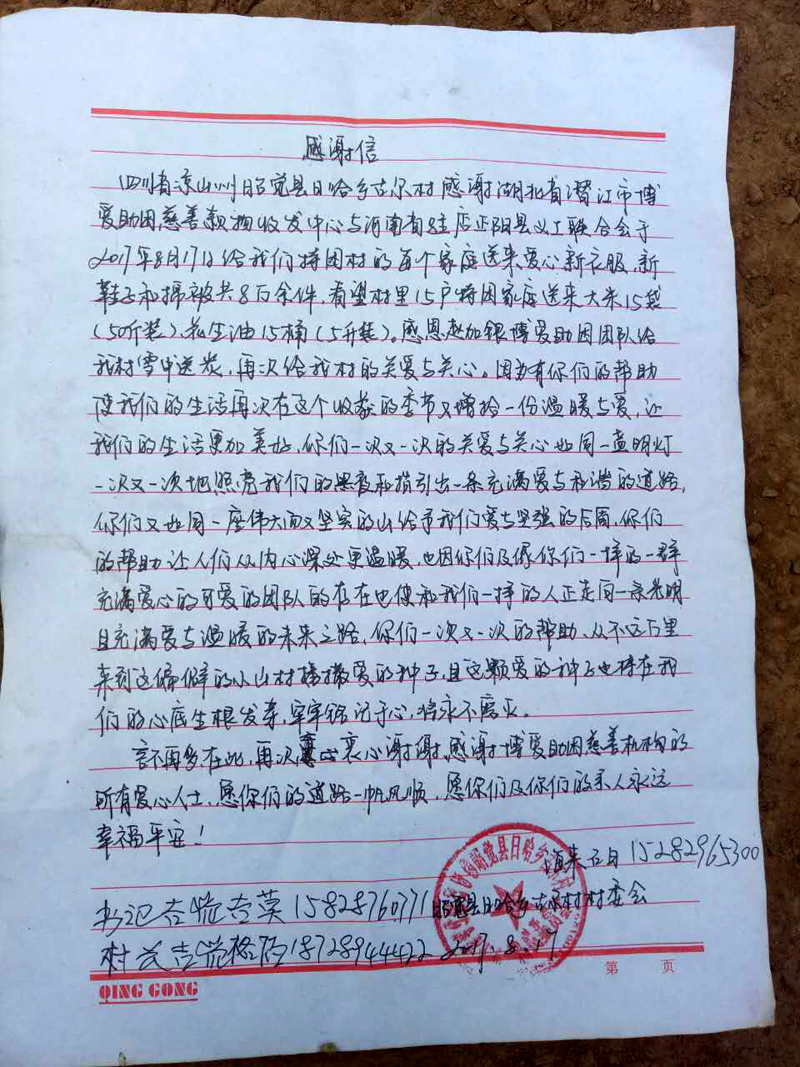 感谢信
四川省凉山州昭觉县日哈乡古尔村感谢湖北省潜江市博
爱助困慈善款物收发中心与河南省驻店正阳县义工联合会于
2017年8月17日给我们特困村的每个家庭送来爱心新衣服,新
鞋子和棉被共8万余件,看望村里15户特困家庭送来大米15袋
(50斤装)、花生油15桶(5升装)。感恩赵加银博爱助困团队给
我村雪中送炭,再次给我村的关爱与关心。因为有你们的帮助
使我们的生活再次在这个收获的季节又增拾一份温暖与爱,让
我们的生活更加美好,你们一次又一次的关爱与关心如同一盏明灯
一次又一次地照亮我们的黑夜和指引出一条充满爱与和谐的道路,
你们又如同一座伟大而又坚实的山给予我们爱与坚强的后盾,你们
的帮助让人们从内心深处更温暖,也因你们及像你们一样的一群
充满爱心的可爱的团队的存在也使和我们一样的人正走向一条光明
且充满爱与温暖的未来之路,你们一次又一次的帮助、从不远万里
来到这偏僻的小山村播撒爱的种子,且这颗爱的种子也将在我
们的心底生根发芽,牢牢铭记于心,将永不磨灭。
言不再多在此,再次衷心谢谢,感谢博爱助困慈善机构的
所有爱心人士,愿你们的道路一帆风顺,愿你们及你们的家人永远
幸福平安!
15282965300
书记 吉 15828760771 昭觉县日哈乡古尔村村委会
村长吉 18728944422 2017.8.17
第 页
QING GONG